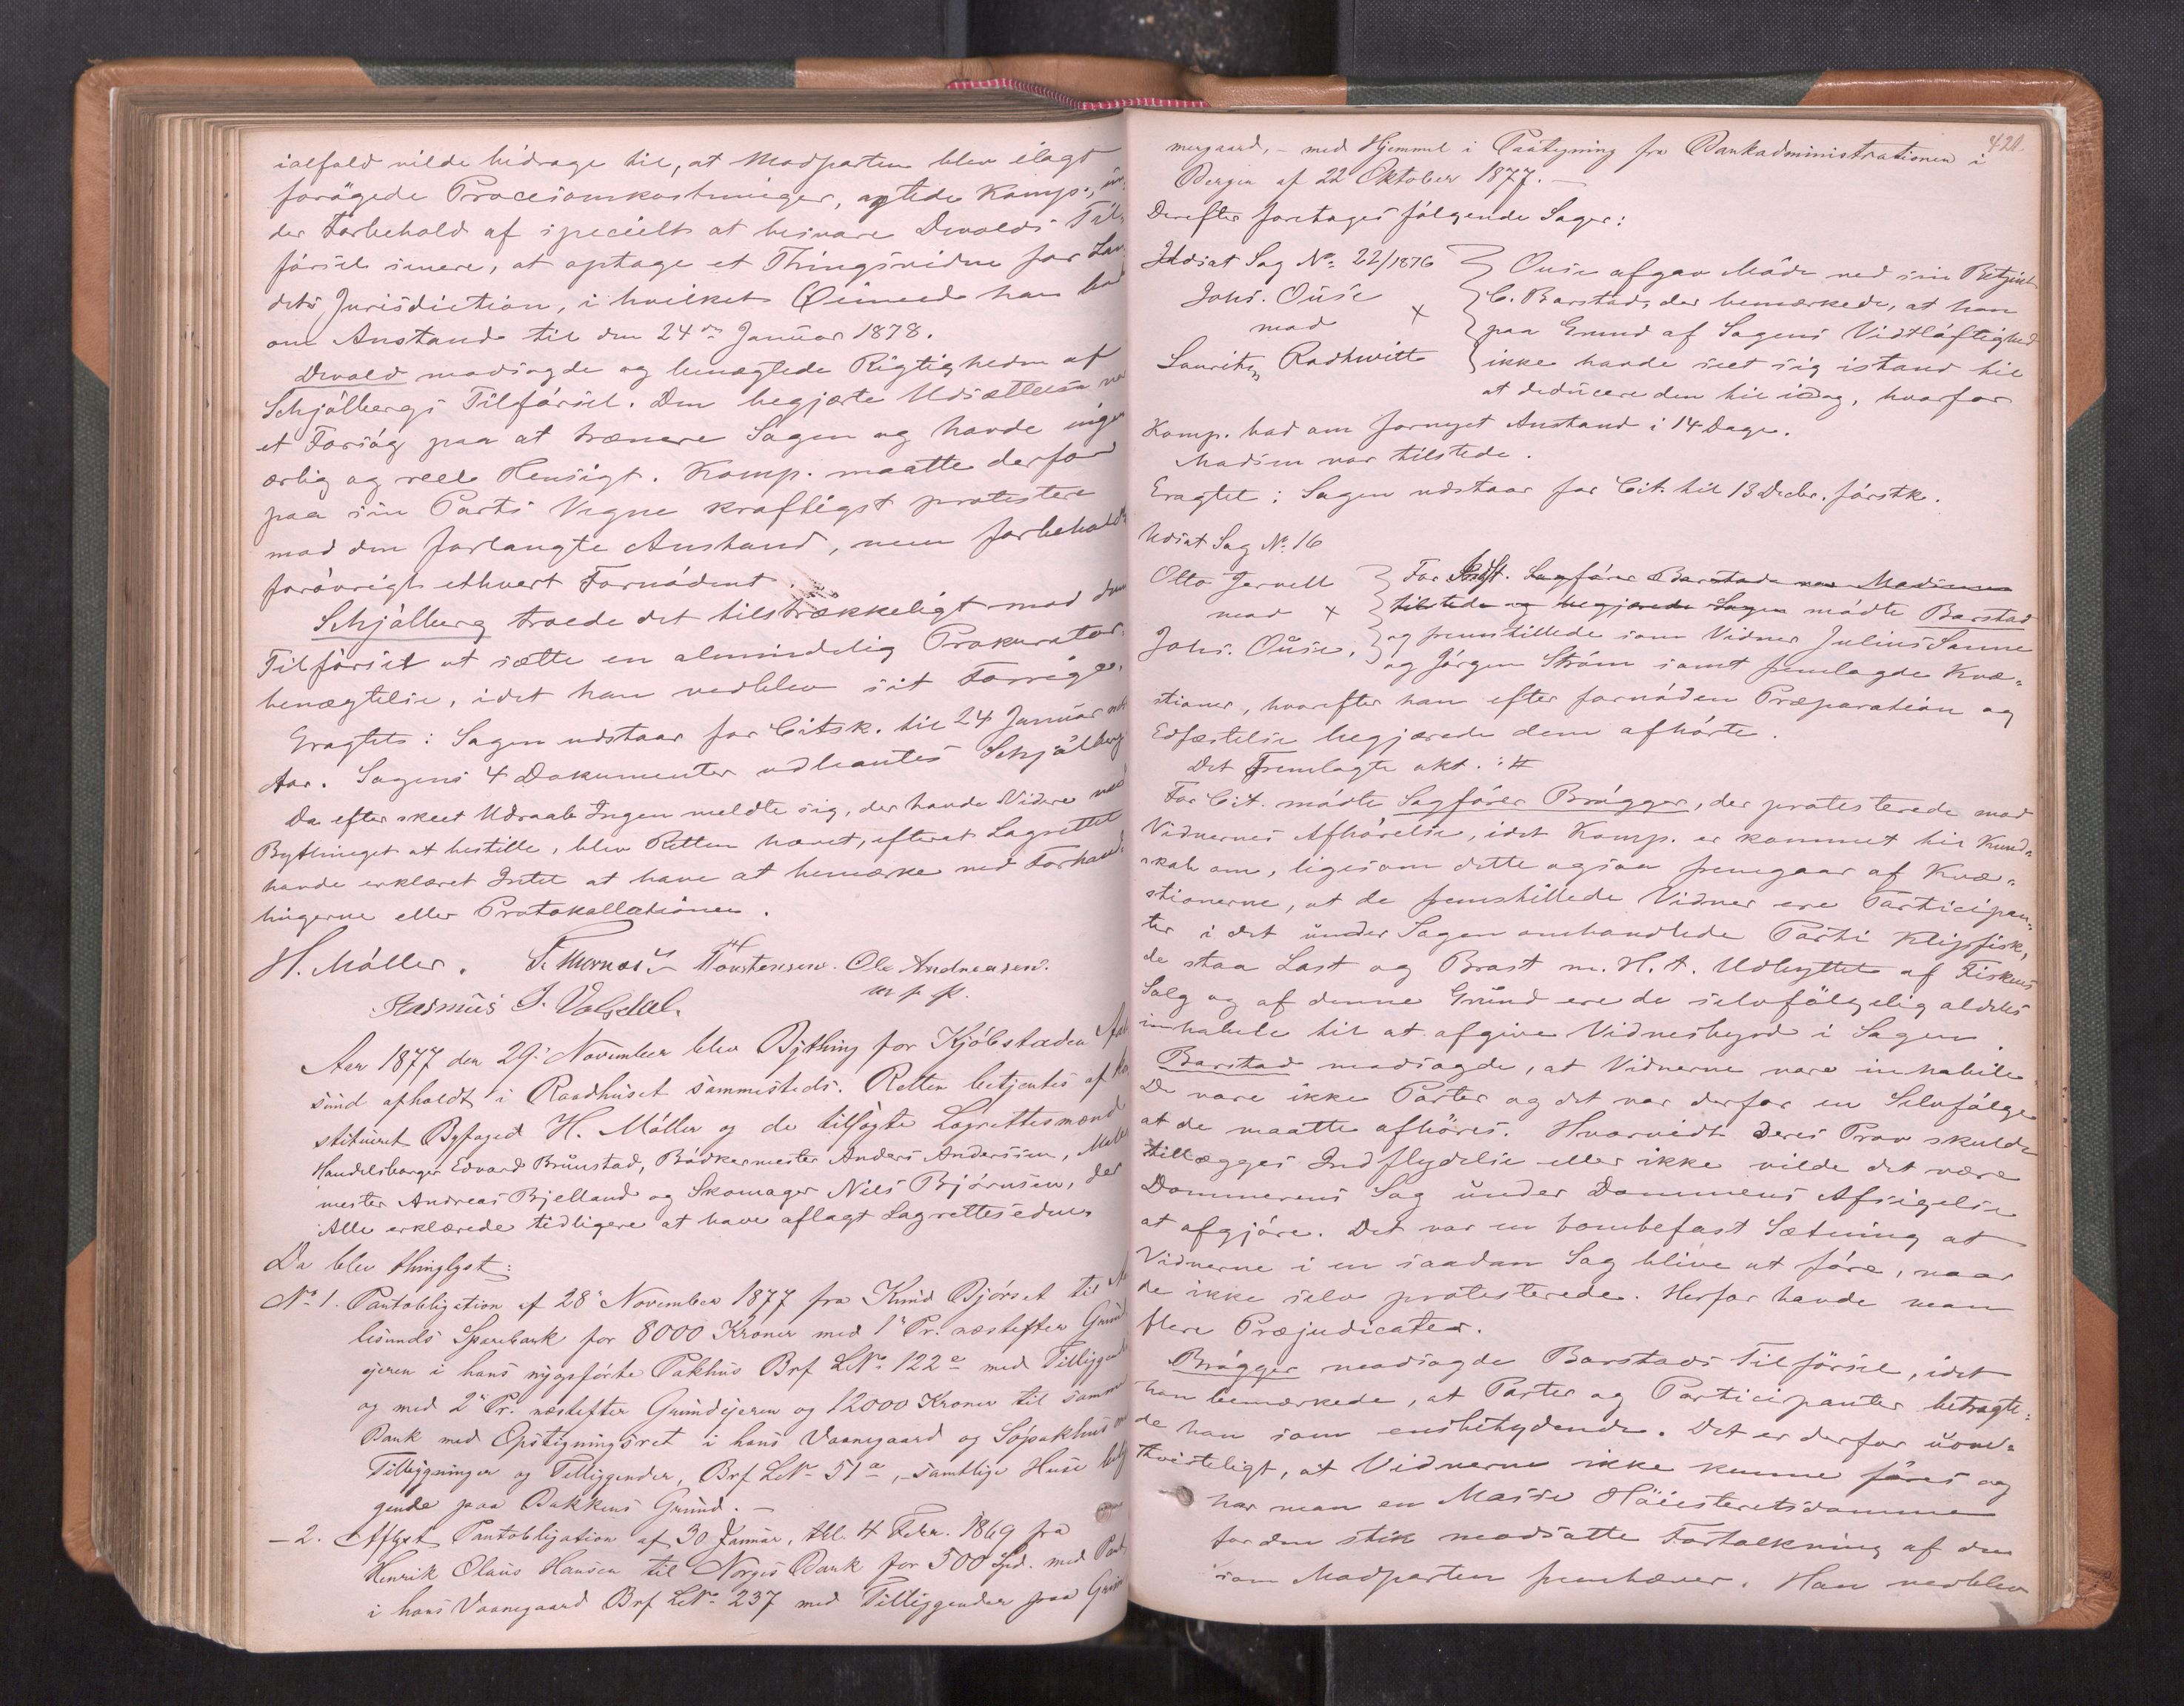 ialfald vilde bidrage til, at Modparten blev ilagt
forögede Procesomkostninger, agtede Komp., un-
der Forbehold af specielt at besvare Devolds Til-
försel senere, at optage et Thingsvidne for
dets Jurisdiction, i hvilket Øiemed han bad
om Anstand til den 24de Januar 1878.
Devold modsagde og benægtede Rigtigheden af
Schjölbergs Tilförsel. Den begjærte Udsættelse var
et Forsög paa at trænere Sagen og havde ingen
ærlig og reel Hensigt. Komp. maatte derfor
paa sin Parts Vegne kraftigst protestere
mod den forlangte Anstand, men forbeholdt
forövrigt ethvert Fornödent.
Schjölberg troede det tilstrækkeligt mod den
Tilförsel at sætte en almindelig Prokurator-
benægtelse, idet han vedblev sit Forrige.
Eragtet: Sagen udstaar for Citsk. til 24 Januar
. Sagens 4 Dokumenter udlaantes Schjölberg
Da efter skeet Udraab Ingen meldte sig, der havde Videre ved
Bythinget at bestille, blev Retten hævet, efterat Lagrettet
havde erklæret Intet at have at bemærke ved Forhand-
lingerne eller Protokollationen.
H. Möller. Torstensen. Ole Andreasen.
m. p. p.
Rasmus J. Volsdal.
Aar 1877 den 29. November blev Bything for Kjöbstaden Aale-
sund afholdt i Raadhuset sammesteds. Retten betjentes af Kon-
stitueret Byfoged H. Möller og de tilsagte Lagrettesmænd
Handelsborger Edvard Brunstad, Bödkermester Anders Anderssen, Maler-
mester Andreas Bjelland og Skomager Nils Björnsen, der
Alle erklærede tidligere at have aflagt Lagretteseden.
Da blev thinglyst:
No 1. Pantobligation af 28 November 1877 fra Knud Björset til Aa-
lesunds Sparebank for 8000 Kroner med 1ste Pr. næstefter Grund-
ejeren i hans nyopförte Pakhus Brf LNo 122 c med Tilliggende
og med 2 Pr. næstefter Grundejeren og 12000 Kroner til samme
Bank med Opstigningsret i hans Vaanegaard og Söpakhus
Tilbygninger og Tilliggender, Brf LNo 51 a, samtlige Huse belig-
gende paa Bakkens Grund. —
— 2. Aflyst Pantobligation af 30 Januar, thl. 4 Febr. 1869 fra
Henrik Olaus Hansen til Norges Bank for 500 Spd. med Pant
i hans Vaanegaard Brf LNo 237 med Tilliggender paa
421.
mergaard, - med Hjemmel i Paategning fra Bankadministrationen i
Bergen af 22 Oktober 1877. —
Derefter foretoges fölgende Sager:
Udsat Sag No 22/1876
Johs. Ouse
mod x
Lauritz Rodtwitt
Ouse afgav Möde ved sin Betjent
C. Barstad, der bemærkede, at han
paa Grund af Sagens Vidtlöftighed
ikke havde seet sig istand til
at deducere den til idag, hvorfor
Komp. bad om fornyet Anstand i 14 Dage.
Madsen var tilstede.
Eragtet: Sagen udstaar for Cit. til 13 Decbr. förstk.
Udsat Sag No 16
Otto Jervell
mod x
Johs. Ouse.
For Sagförer Barstad var Madsen
tilstede og begjærede Sagen mödte Barstad
og fremstillede som Vidner Julius Sanne
og Jörgen Ström samt fremlagde Kvæ-
stioner, hvorefter han efter fornöden Præparation og
Edfæstelse begjærede dem afhörte.
Det Fremlagte akt. :#
For Cit. mödte Sagförer Brögger, der protesterede mod
Vidnernes Afhörelse, idet Komp. er kommet til Kund-
skab om, ligesom dette ogsaa fremgaar af Kvæ-
stionerne, at de fremstillede Vidner ere Participan-
ter i det under Sagen omhandlede Parti Klipfisk,
de staa Last og Brast m. H. t. Udbyttet af Fiskens
Salg og af denne Grund ere de selvfölgelig aldeles
inhabile til at afgive Vidnesbyrd i Sagen.
Barstad modsagde, at Vidnerne vare inhabile.
De vare ikke Parter og det var derfor en Selvfölge
at de maatte afhöres. Hvorvidt deres Prov skulde
tillægges Indflydelse eller ikke vilde det være
Dommerens Sag under Dommens Afsigelse
at afgjöre. Det var en bombefast Sætning at
Vidnerne i en saadan Sag blive at före, naar
de ikke selv protesterede. Herfor havde man
flere Præjudicater.
Brögger modsagde Barstads Tilförsel, idet
han bemærkede, at Parter og Participanter betragte-
de han som enstbetydende. Det er derfor uom-
tvisteligt, at Vidnerne ikke kunne föres og
har man en Masse Höiesteretsdomme
for den stik modsatte Fortolkning af den
som Modparten fremhæver. Han vedblev